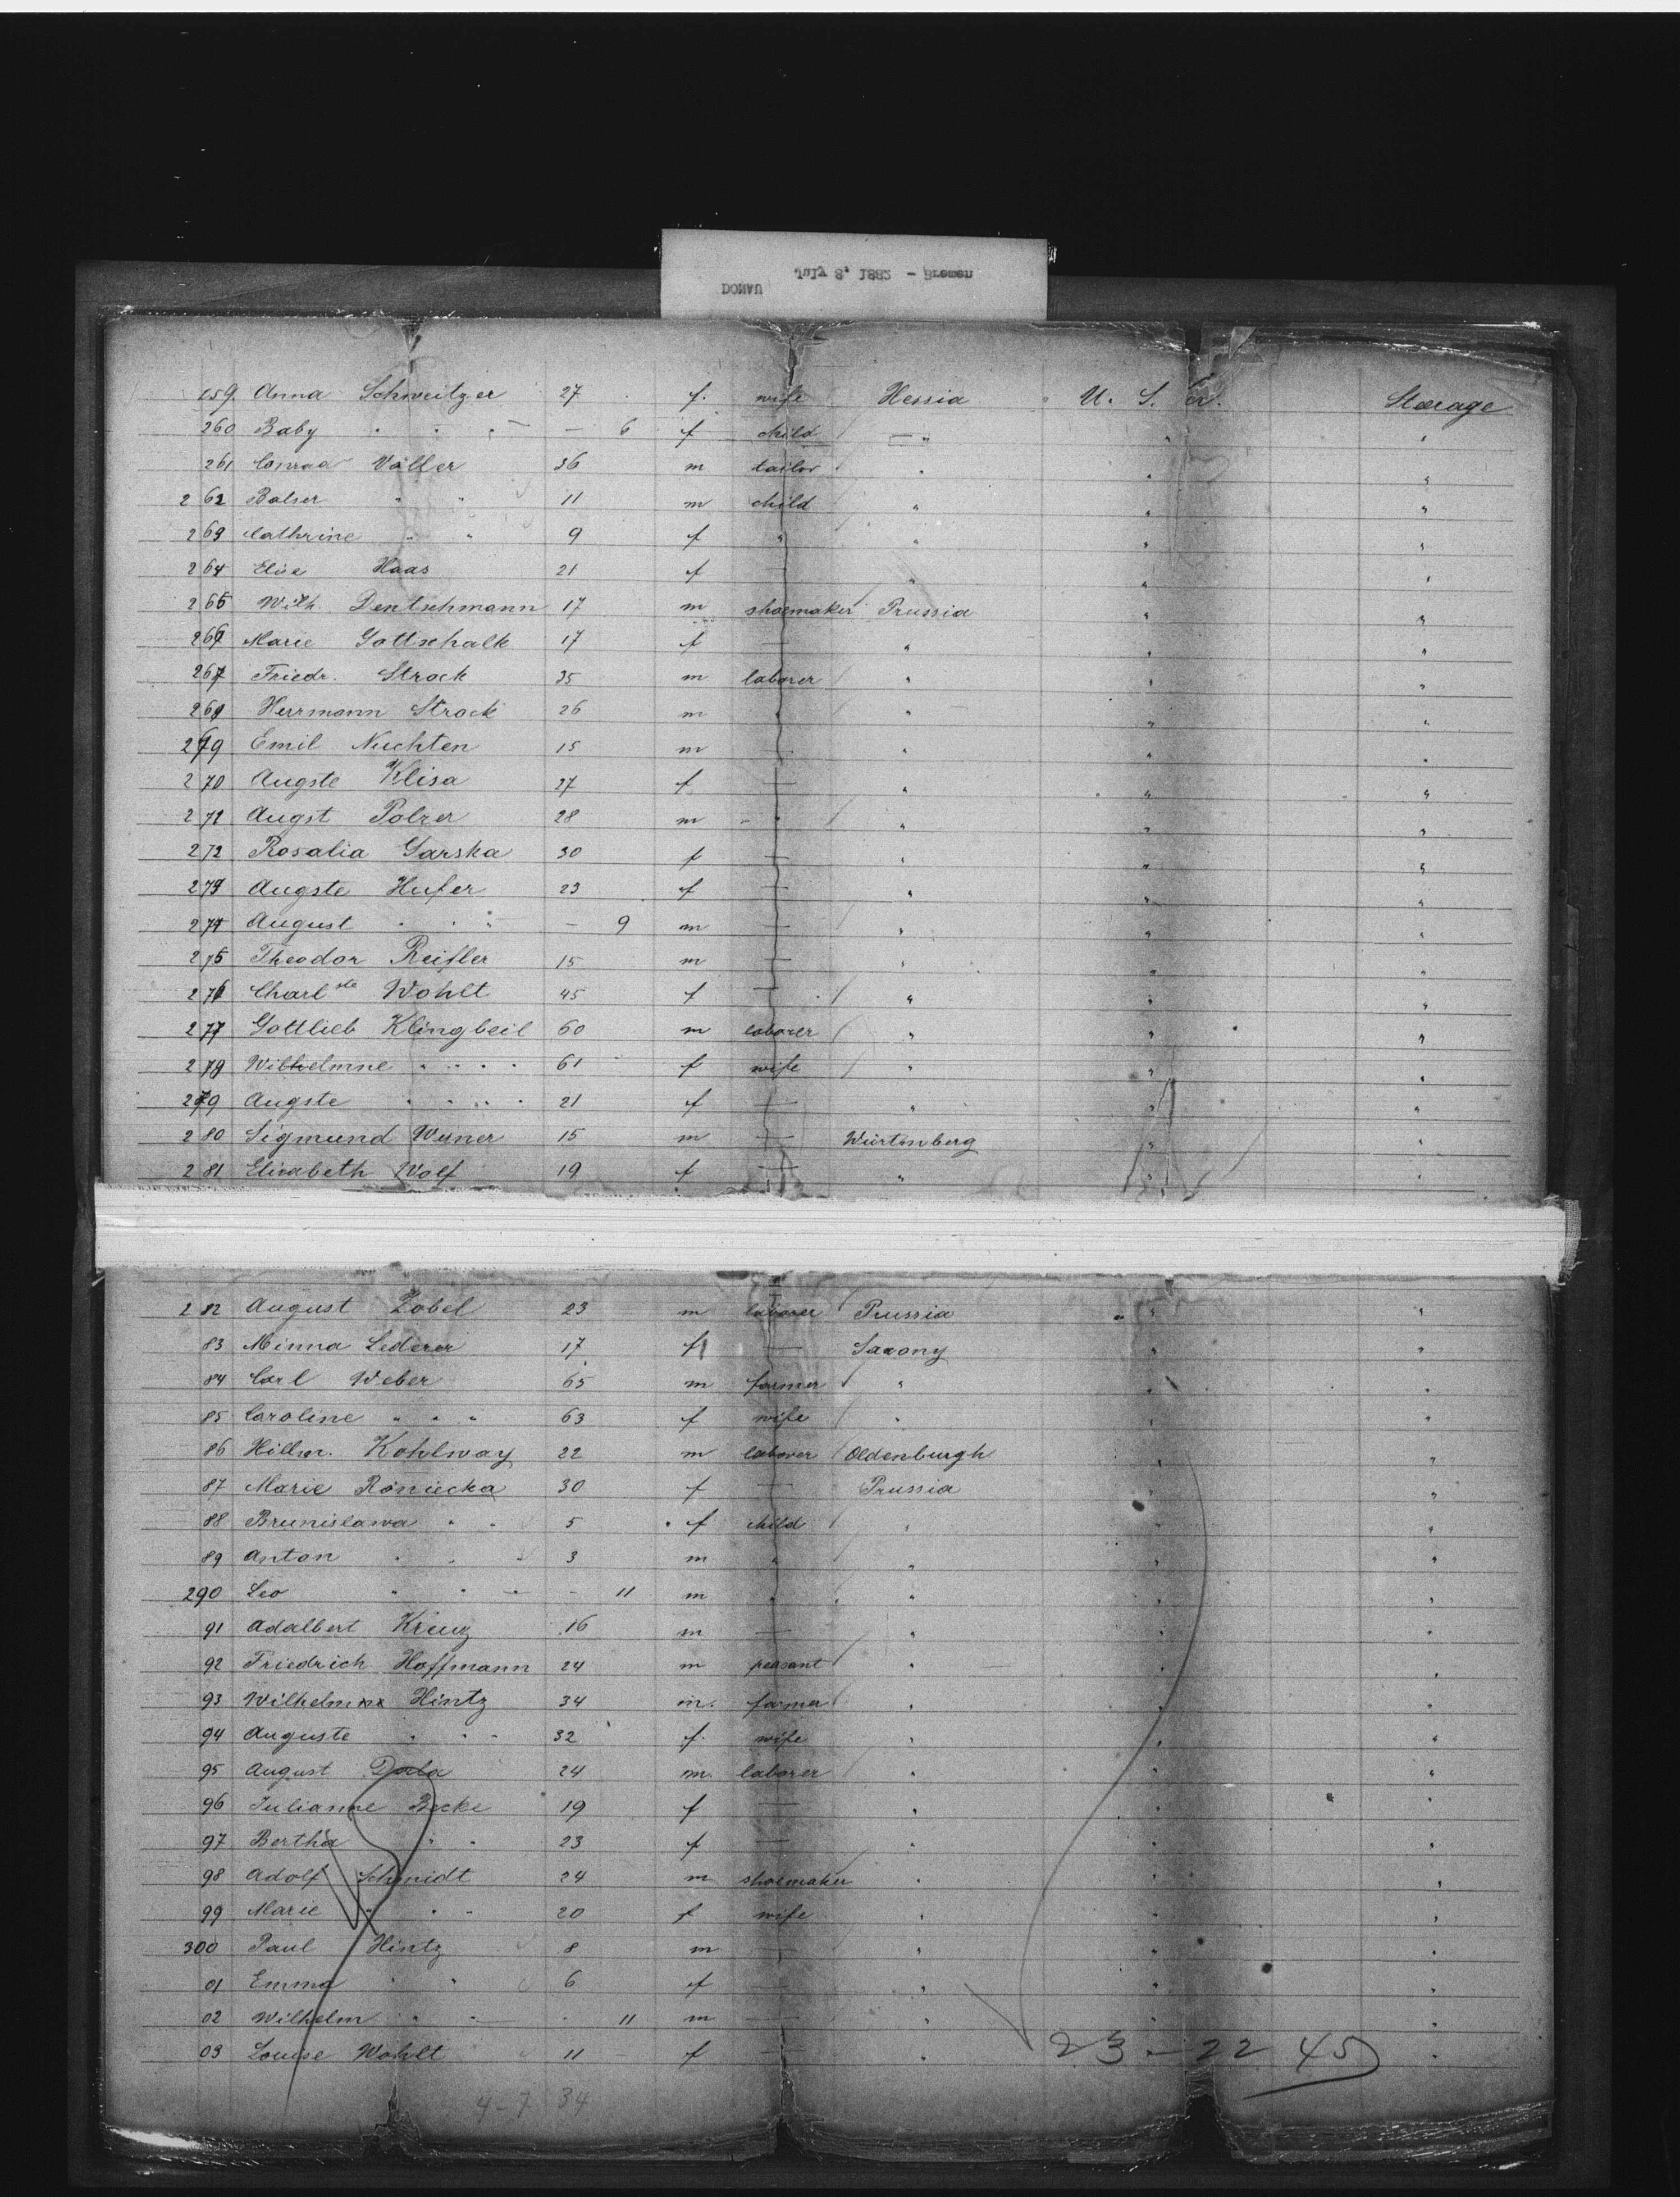 July 8, 1882 - Bremen
DONAU
259 Anna Schweitzer 27 f. wife Hessia U. S. Steerage
260 Baby " " " — 6 f child — " " "
261 Conrad Völler 36 m tailor " " "
262 Balser " " 11 m child " " "
263 Cathrine " " 9 f " " " "
264 Elise Haas 21 f — " " "
265 Wilh. Dentschmann 17 m shoemaker Prussia " "
266 Marie Gottschalk 17 f — " " "
267 Friedr. Strack 35 m laborer " " "
268 Herrmann Strack 26 m " " " "
269 Emil Nuchten 15 m — " " "
270 Augste Klisa 27 f — " " "
271 Augst Polzer 28 m " " " "
272 Rosalia Garska 30 f — " " "
273 Augste Hufer 23 f — " " "
274 August " " " — 9 m — " " "
275 Theodor Reifler 15 m — " " "
276 Charl tte Wohlt 45 f — " " "
277 Gottlieb Klingbeil 60 m laborer " " "
278 Wilhelmne " " " " 61 f wife " " "
279 Augste " " " " 21 f — " " "
280 Sigmund 15 m — Würtmberg " "
281 Elisabeth Wolf 19 f — " " "
282 August Zobel 23 m laborer Prussia " "
83 Minna Lederer 17 f — Saxony " "
84 Carl Weber 65 m farmer " " "
85 Caroline " " " 63 f wife " " "
86 Hillm. Kohlway 22 m laborer Oldenburgh " "
87 Marie Roniecka 30 f — Prussia " "
88 Brunislawa " " 5 f child " " "
89 Anton " " " 3 m " " " "
290 Leo " " " - 11 m " " " "
91 Adalbert Kreuz 16 m — " " "
92 Friedrich Hoffmann 24 m peasant " " "
93 Wilhelm Hintz 34 m. farmer " " "
94 Auguste " " " 32 f. wife " " "
95 August 24 m. laborer " " "
96 Julianne Becke 19 f — " " "
97 Bertha " " 23 f — " " "
98 Adolf Schmidt 24 m shoemaker " " "
99 Marie " " " 20 f wife " " "
300 Paul Hintz 8 m — " " "
01 Emma " " 6 f — " " "
02 Wilhelm " " — 11 m — " " "
03 Louise Wohlt 11 - f — " "
23 - 22 45
4-7 34